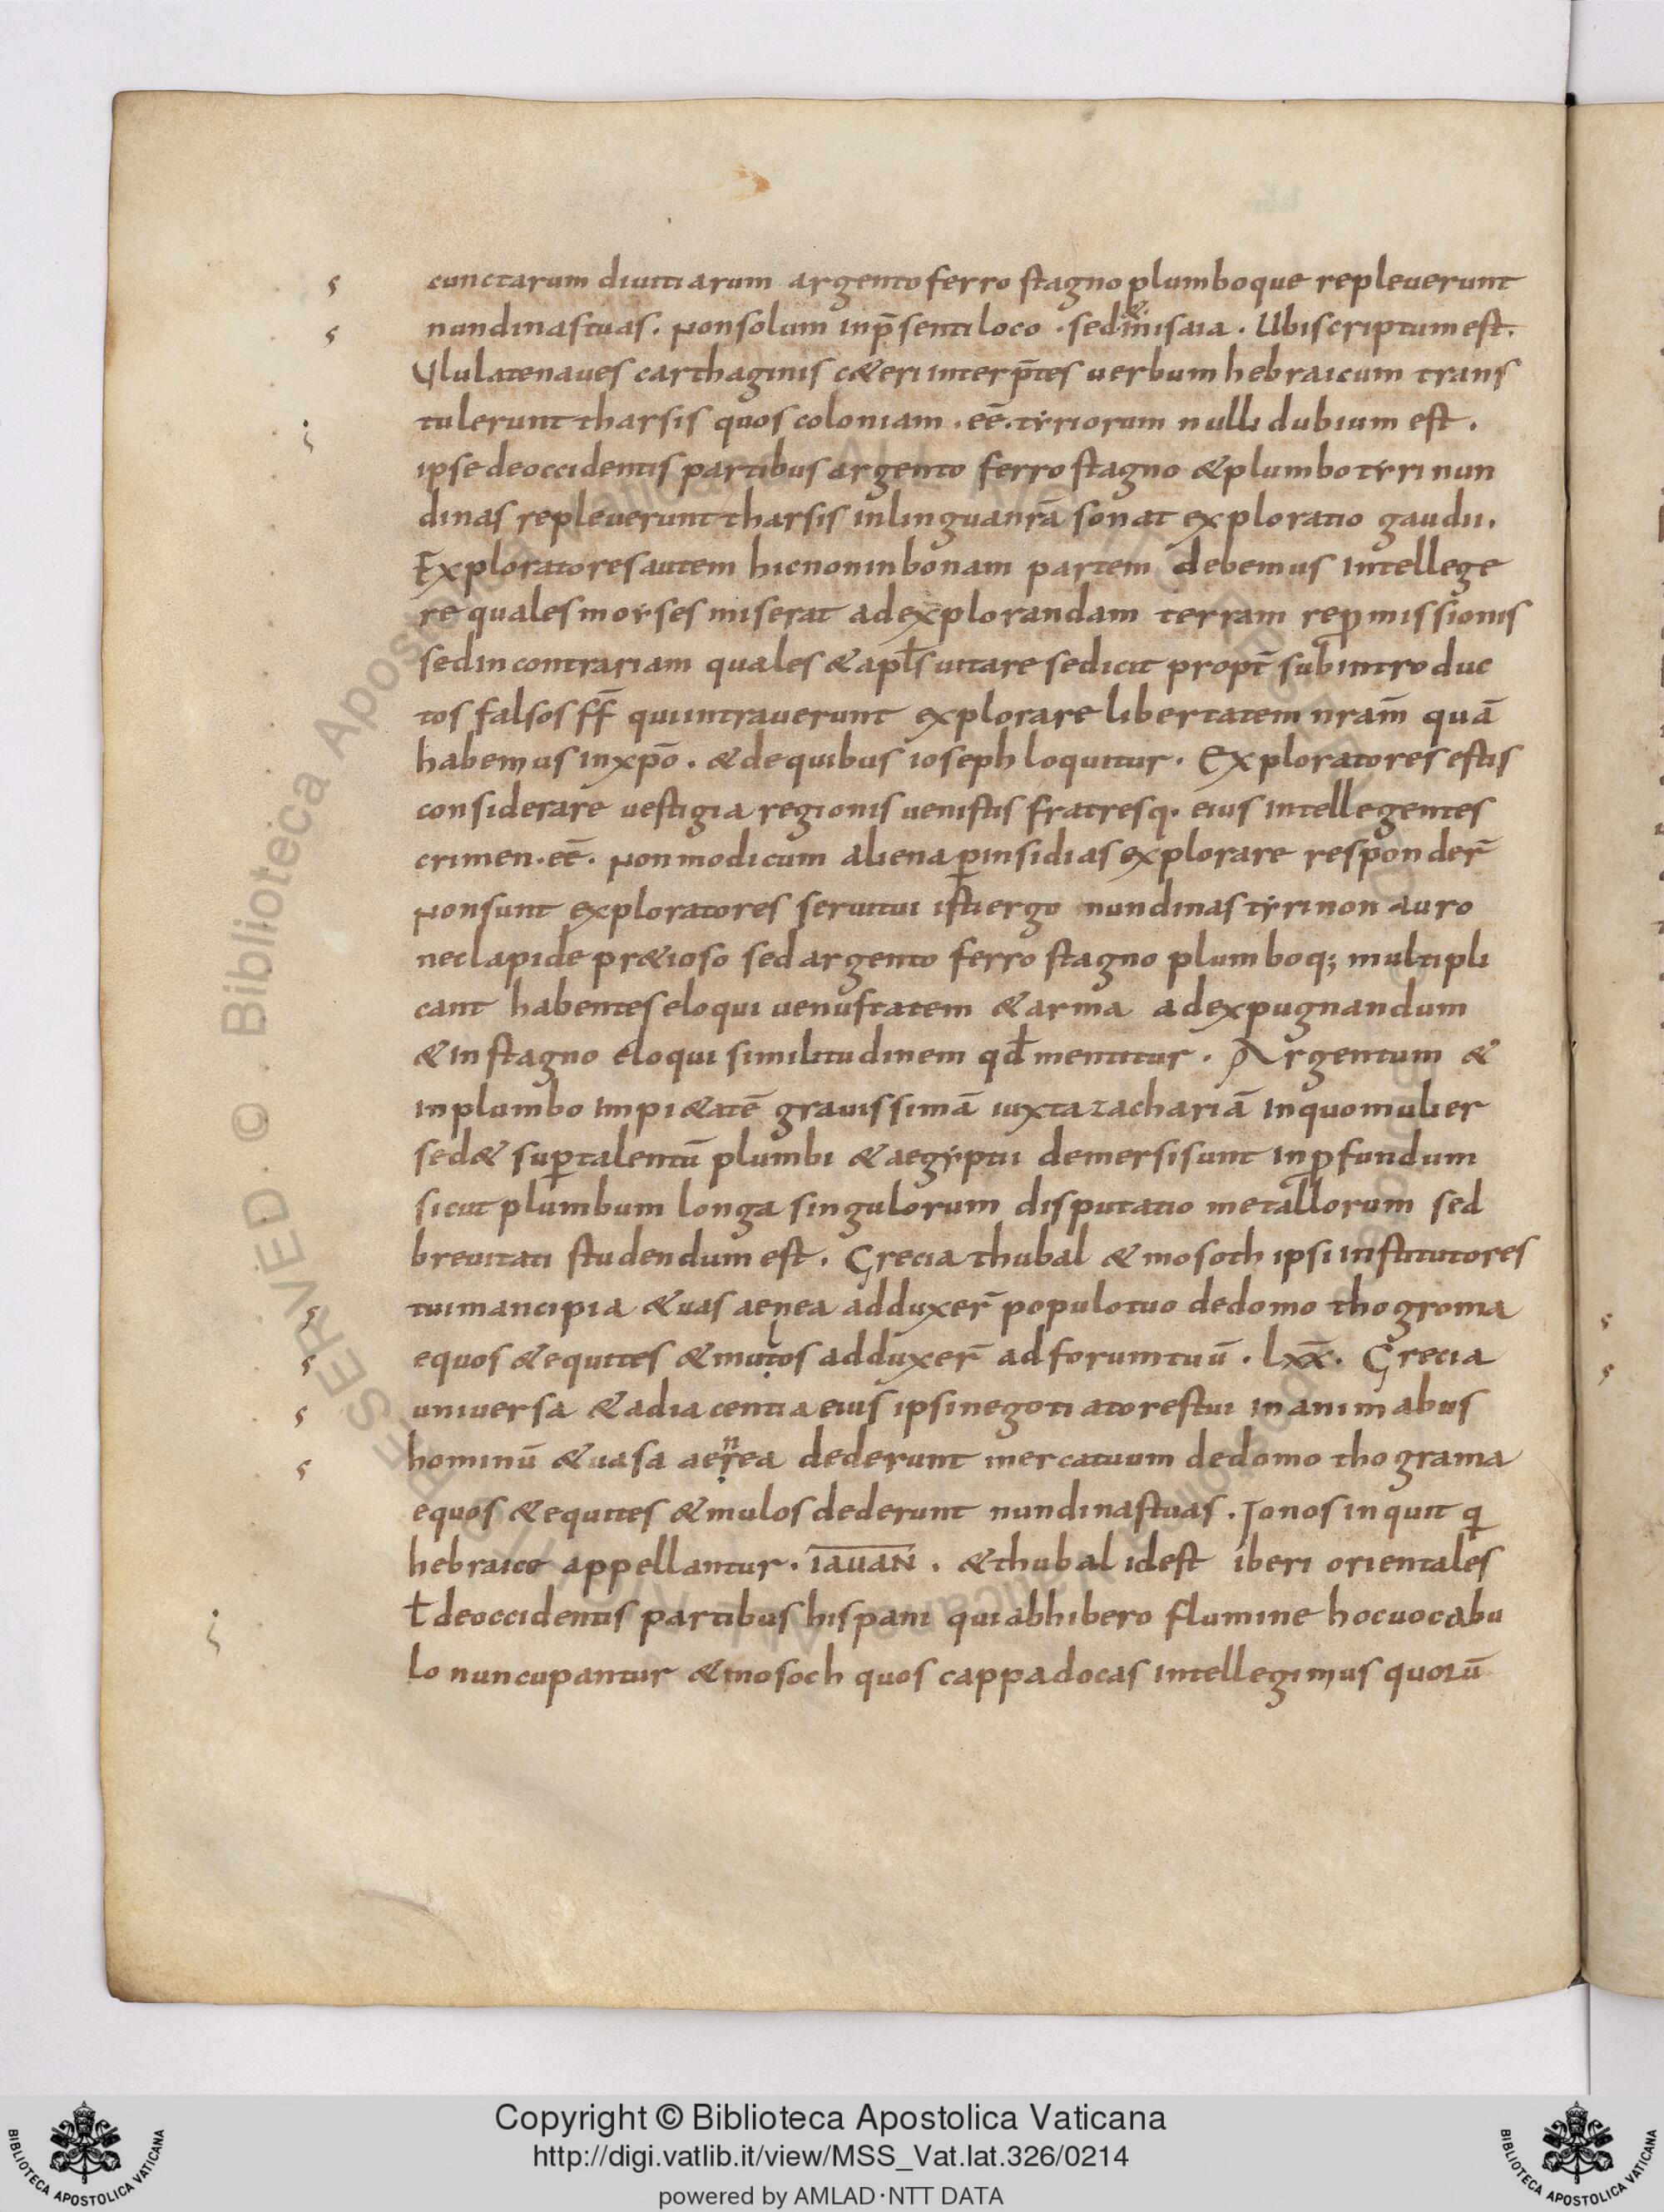 cunctarum diuitiarum argento ferro stagno plumboque repleuerunt
nundinas tuas. Non solum in p̄senti loco . sed & in isaia . Ubi scriptum est.
Ululate naues carthaginis c&eri interp̄tes uerbum hebraicum trans
tulerunt tharsis quos coloniam . eē. tyriorum nulli dubium est .
ipse de occidentis partibus argento ferro stagno & plumbo tyri nun
dinas repleuerunt tharsis in lingua nr̄a sonat exploratio gaudii.
Exploratores autem hic non in bonam partem debemus intellege
re quales moyses miserat ad explorandam terram repromissionis
sed in contrariam quales & apl̄s uitare se dicit propt̄ subintroduc
tos falsos ff̄ qui intrauerunt explorare libertatem nram̄ quā
habemus in xp̄o . & de quibus ioseph loquitur . Exploratores estis
considerare uestigia regionis uenistis fratresq. eius intellegentes
crimen . eē. Non modicum aliena ꝑ insidias explorare responder̄
Non sunt exploratores serui tui isti ergo nundinas tyri non auro
nec lapide pr&ioso sed argento ferro stagno plumboq; multipli
cant habentes eloqui uenustatem & arma ad expugnandum
& in stagno eloqui similitudinem qd̄ mentitur . Argentum &
in plumbo impi&atē grauissimā iuxta zachariā in quo mulier
sed& suꝑ talentū plumbi & aegyptii demersi sunt in ꝓfundum
sicut plumbum longa singulorum disputatio metallorum sed
breuitati studendum est . Grecia thubal & mosoth ipsi institutores
tui mancipia & uas aenea adduxer̄ populo tuo de domo thogroma
equos & equites & mutos adduxer̄ ad forum tuū . lxx̄ . Grecia
uniuersa & adiacentia eius ipsi negotiatores tui in animabus
hominū & uasa aerea dederunt mercatuum de domo thograma
equos & equites & mulos dederunt nundinas tuas . Jonos inquit q
hebraice appellantur . IAUAN . & thubal id est iberi orientales
ł de occidentis partibus hispani qui ab hibero flumine hoc uocabu
lo nuncupantur & mosoch quos cappadocas intellegimus quorū
Copyright © Biblioteca Apostolica Vaticana
http://digi.vatlib.it/view/MSS_Vat.lat.326/0214
powered by AMLAD·NTT DATA
BIBLIOTECA APOSTOLICA VATICANA
BIBLIOTECA APOSTOLICA VATICANA